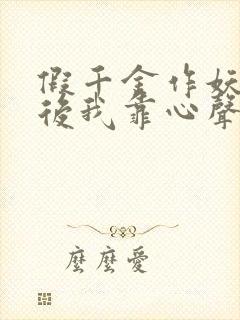 假千金作妖
後我靠心聲
麼麼愛